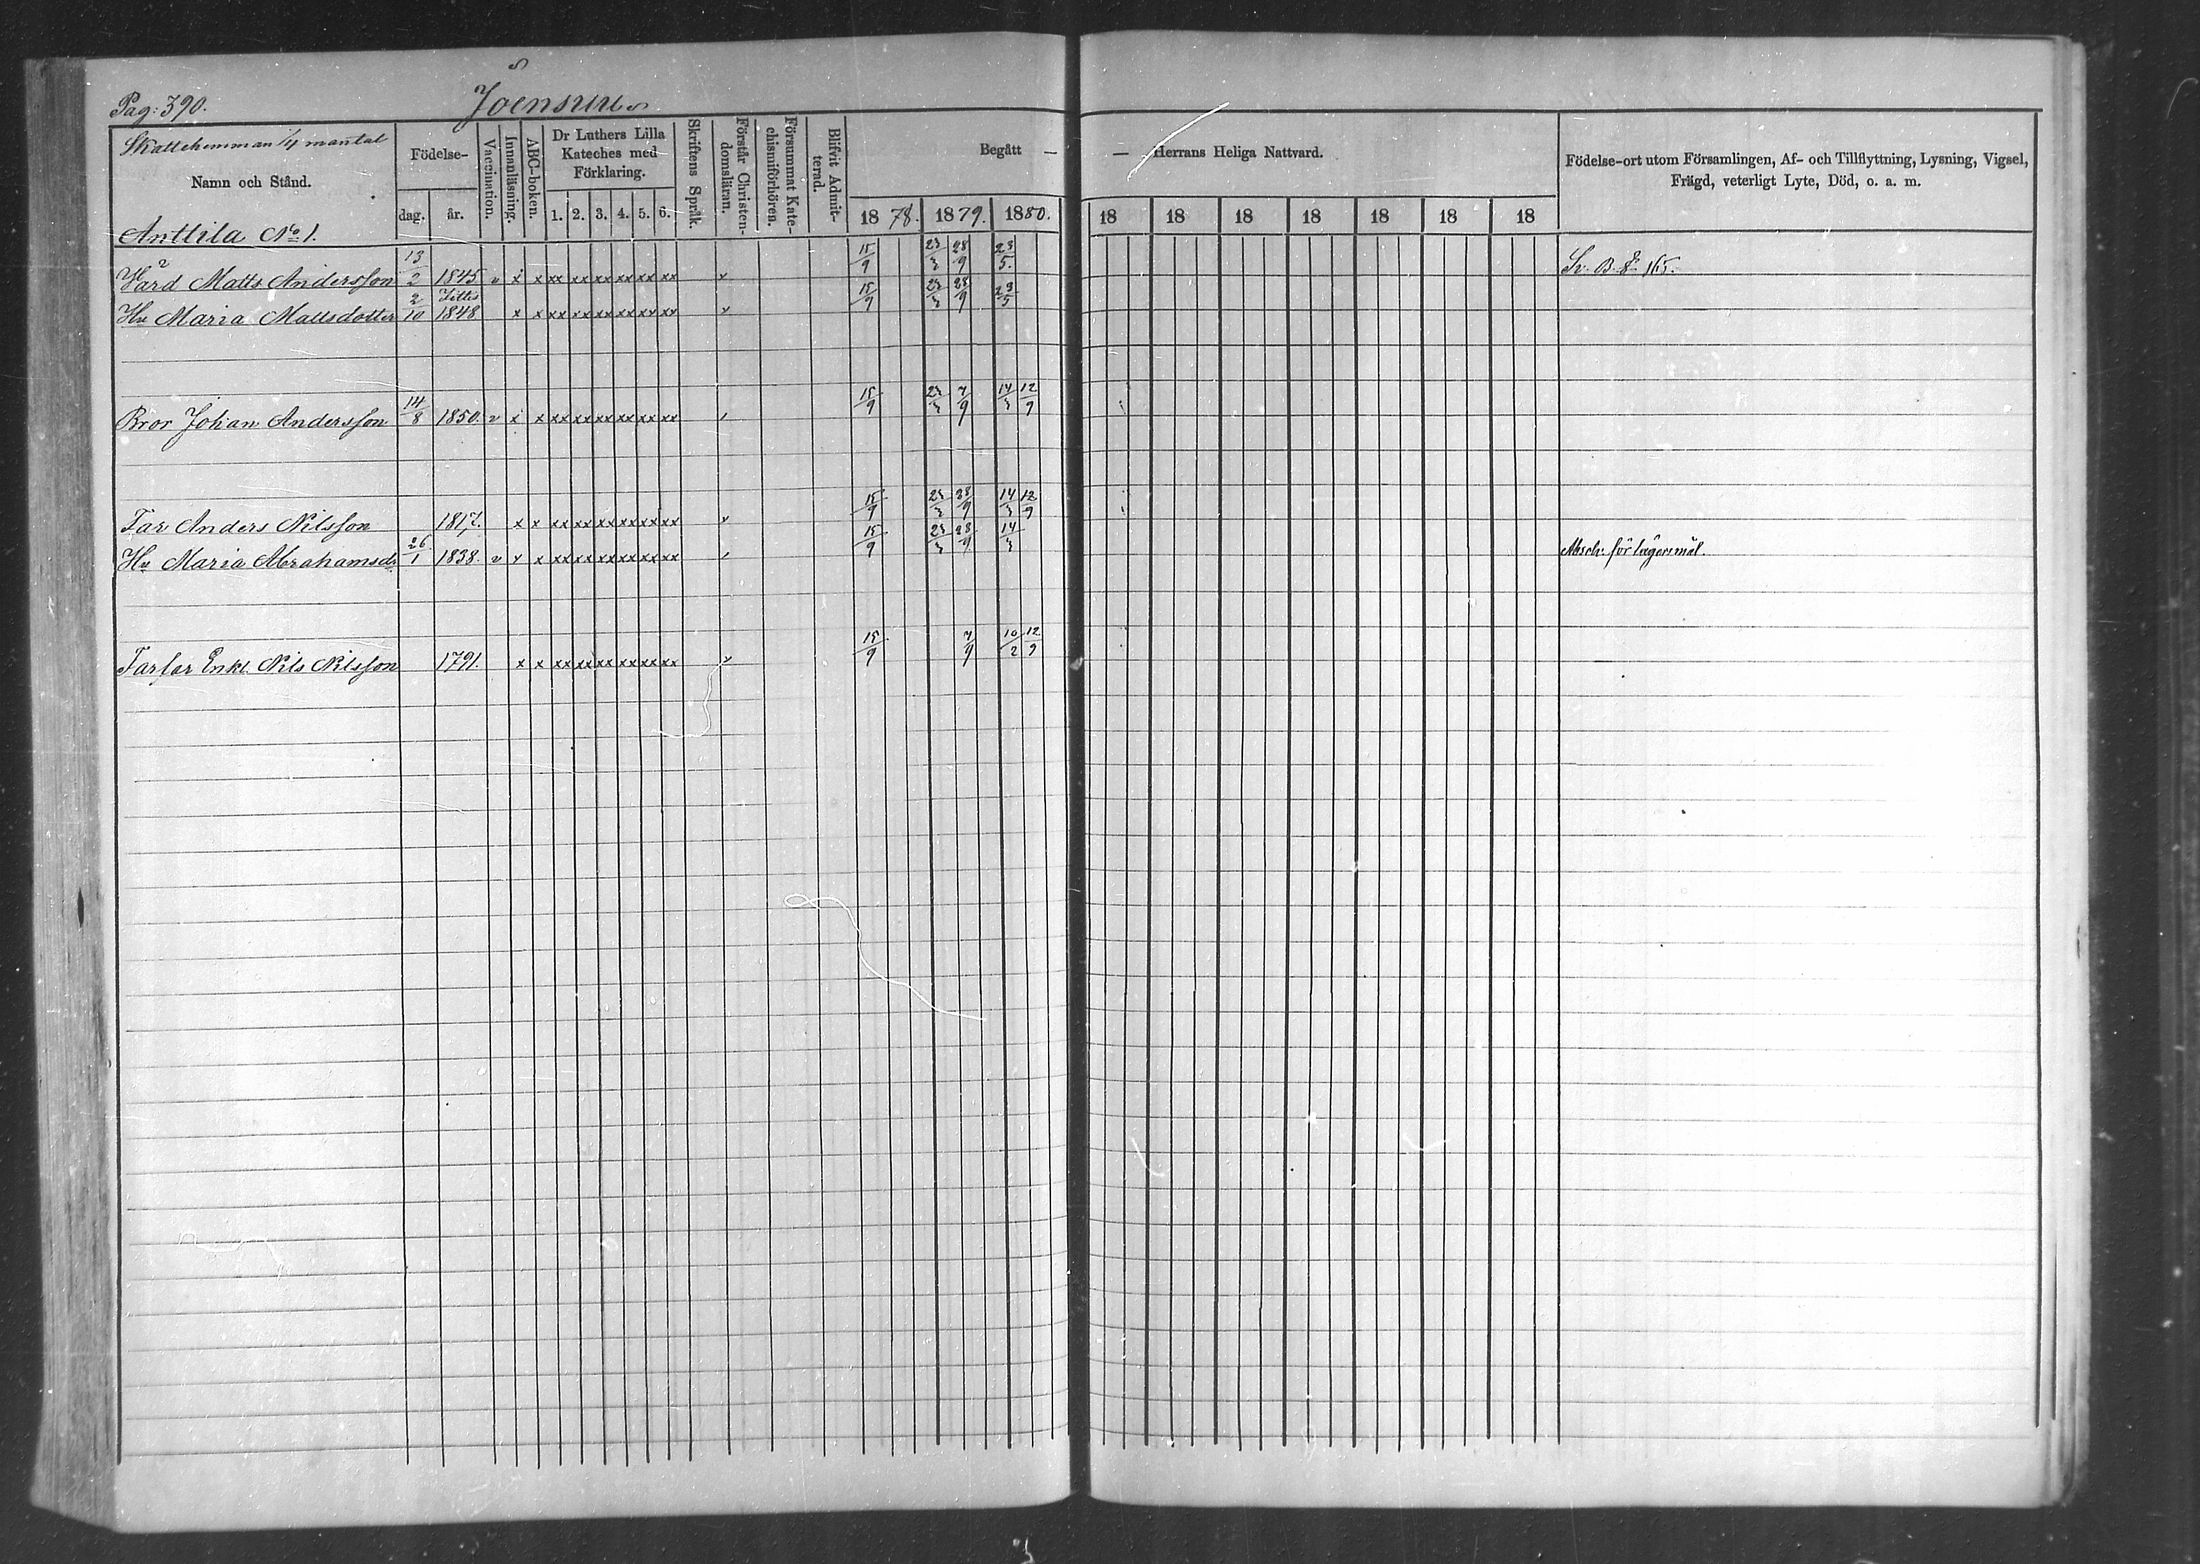 Pag: 390. Joensuu
Skattehemman 1/4 mantal
Namn och Stånd.
Födelse-
dag. år.
Vaccination.
Innanläsning.
ABC-boken.
Dr Luthers Lilla
Kateches med
Förklaring.
1. 2. 3. 4. 5. 6.
Skriftens Språk.
Förstår Christen-
domsläran.
Försummat Kate-
chismiförhören.
Blifvit Admit-
terad.
Begått — — Herrans Heliga Nattvard.
1878. 1879. 1880. 18 18 18 18 18 18 18
Födelse-ort utom Församlingen, Af- och Tillflyttning, Lysning, Vigsel,
Frägd, veterligt Lyte, Död, o. a. m.
Anttila No 1.
Hård Matts Andersson 13/2 1845 v x x xx xx xx xx xx xx 15/9 23/3 28/9 23/5. 165.
Hu Maria Mattsdotter 2/10 1848 x x xx xx xx xx xx xx 15/9 23/3 28/9 23/5
Bror Johan Andersson 14/8 1850. v x x xx xx xx xx xx xx 15/9 23/3 7/9 14/3 12/9
Far Anders Nilsson 1817. x x xx xx xx xx xx xx 15/9 23/3 28/9 14/3 12/9
Hu Maria Abrahamsdr 26/1 1838. v x x xx xx xx xx xx xx 15/9 23/3 28/9 14/3 Absol: för lägersmål.
Farfar Enkl. Nils Nilsson 1791. x x xx xx xx xx xx xx 15/9 7/9 10/2 12/9